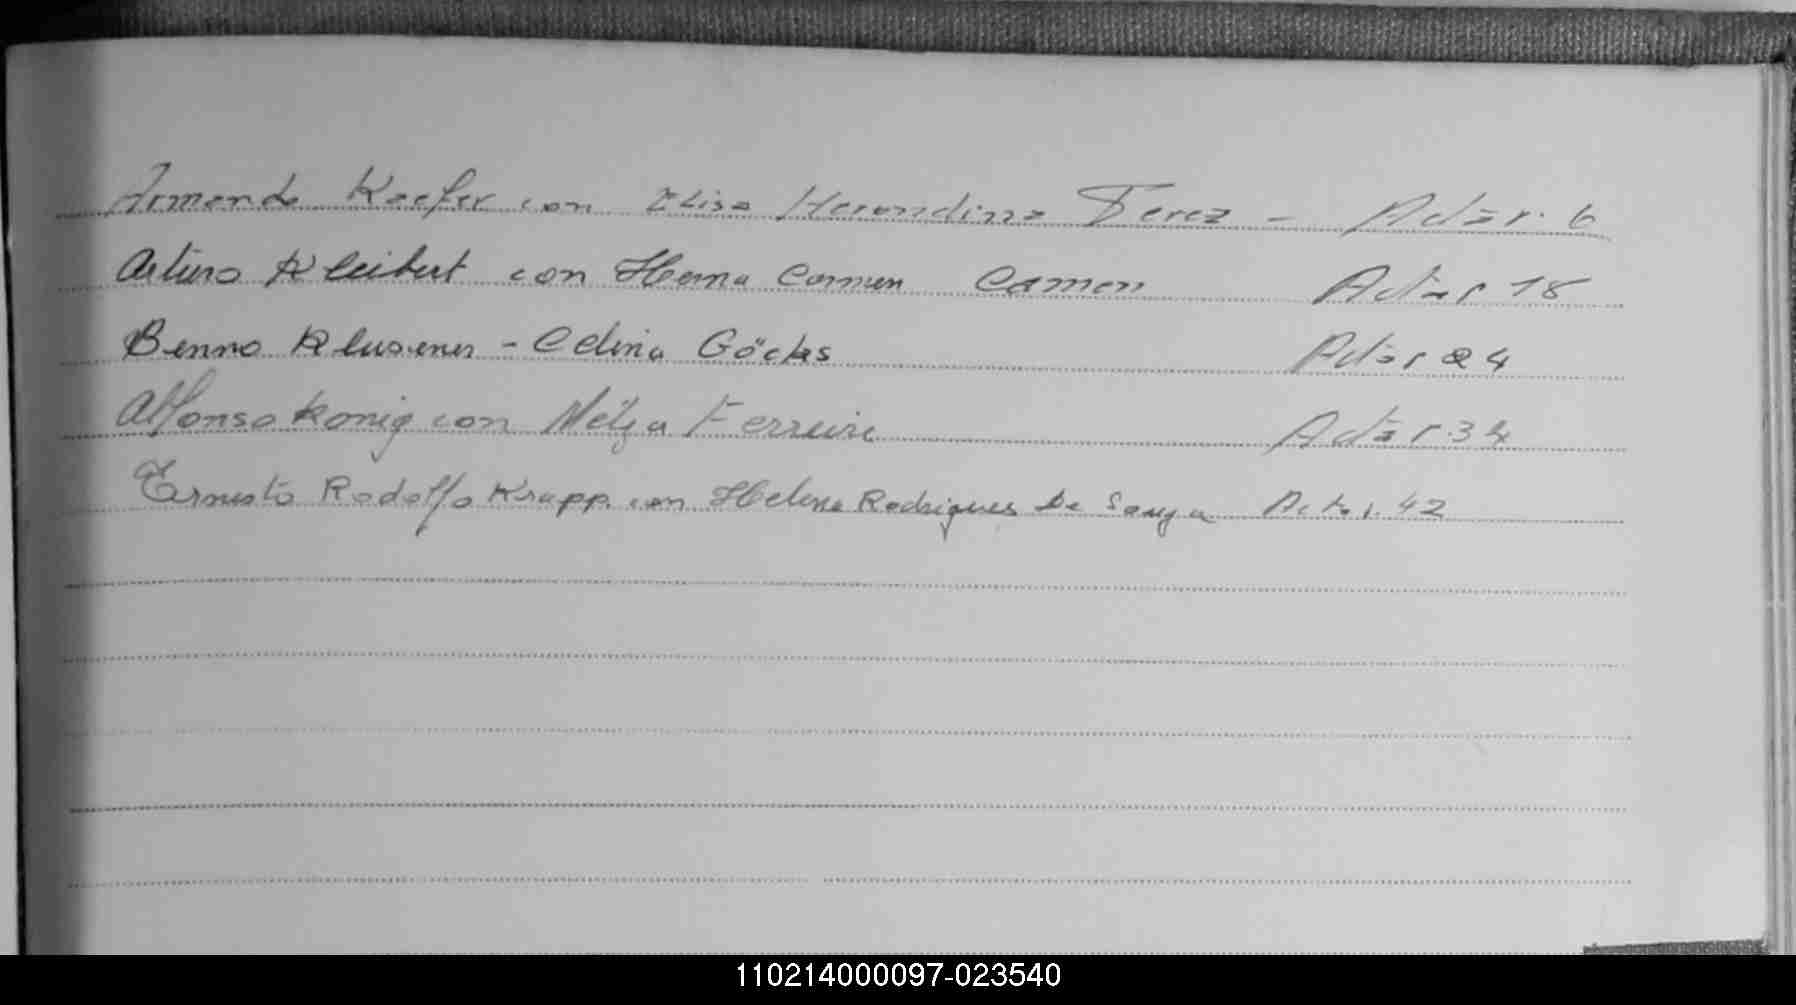 Armando Keefer con Elisa Herondina Perez - Acta r. 6
Arturo Kleibert con Herna Carmen Camen Acta r 18
Benno Klusener - Celina Göcks Acta r 24
Alfonso Konig con Nelza Ferreira Acta r. 34
Ernesto Rodolfo Krapp. con Helena Rodrigues De Sauza Acta r. 42
110214000097-023540